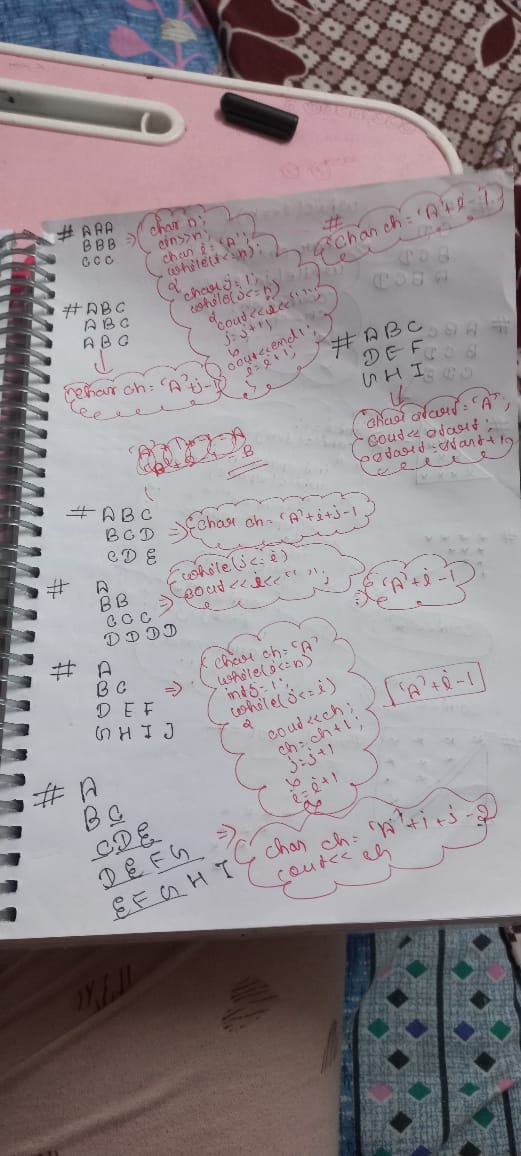 # AAA
BBB
CCC
=> char n;
cin>>n;
char i = 'A';
while(i<=n);
{
char j = 1;
while(j<=n)
{
cout<<i<<" ";
j = j+1;
}
cout<<endl;
i = i+1;
}
#
char ch = 'A'+i-1
# ABC
ABC
ABC
char ch = 'A'+j-1
# ABC
DEF
GHI
char start = 'A';
cout<< start;
start = start+1;
B
# ABC
BCD
CDE
=> char ch = 'A'+i+j-1
# A
BB
CCC
DDDD
=> while(j<=i)
cout<<i<<" ";
'A'+i-1
# A
BC
DEF
GHIJ
=> char ch = 'A'
while(i<=n)
int j = 1;
while(j<=i)
{
cout<<ch;
ch = ch+1;
j = j+1
}
i = i+1
'A'+i-1
# A
BC
CDE
DEFG
EFGHI
=> char ch = 'A'+i+j-2
cout<< ch